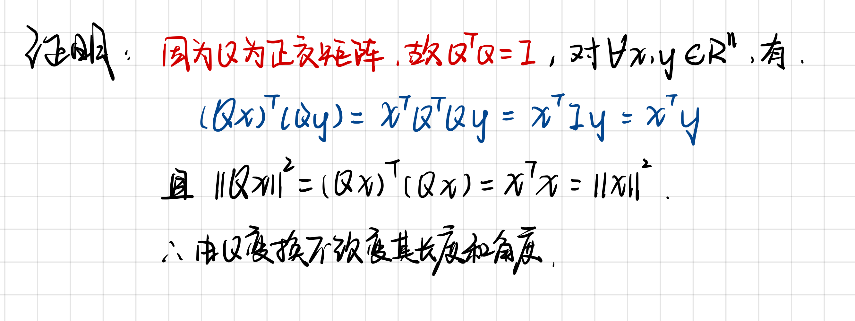 证明：因为Q为正交矩阵，故QᵀQ=I，对∀x,y∈Rⁿ，有.
(Qx)ᵀ(Qy)=xᵀQᵀQy=xᵀIy=xᵀy
且 ||Qx||²=(Qx)ᵀ(Qx)=xᵀx=||x||².
∴由Q变换不改变其长度和角度.